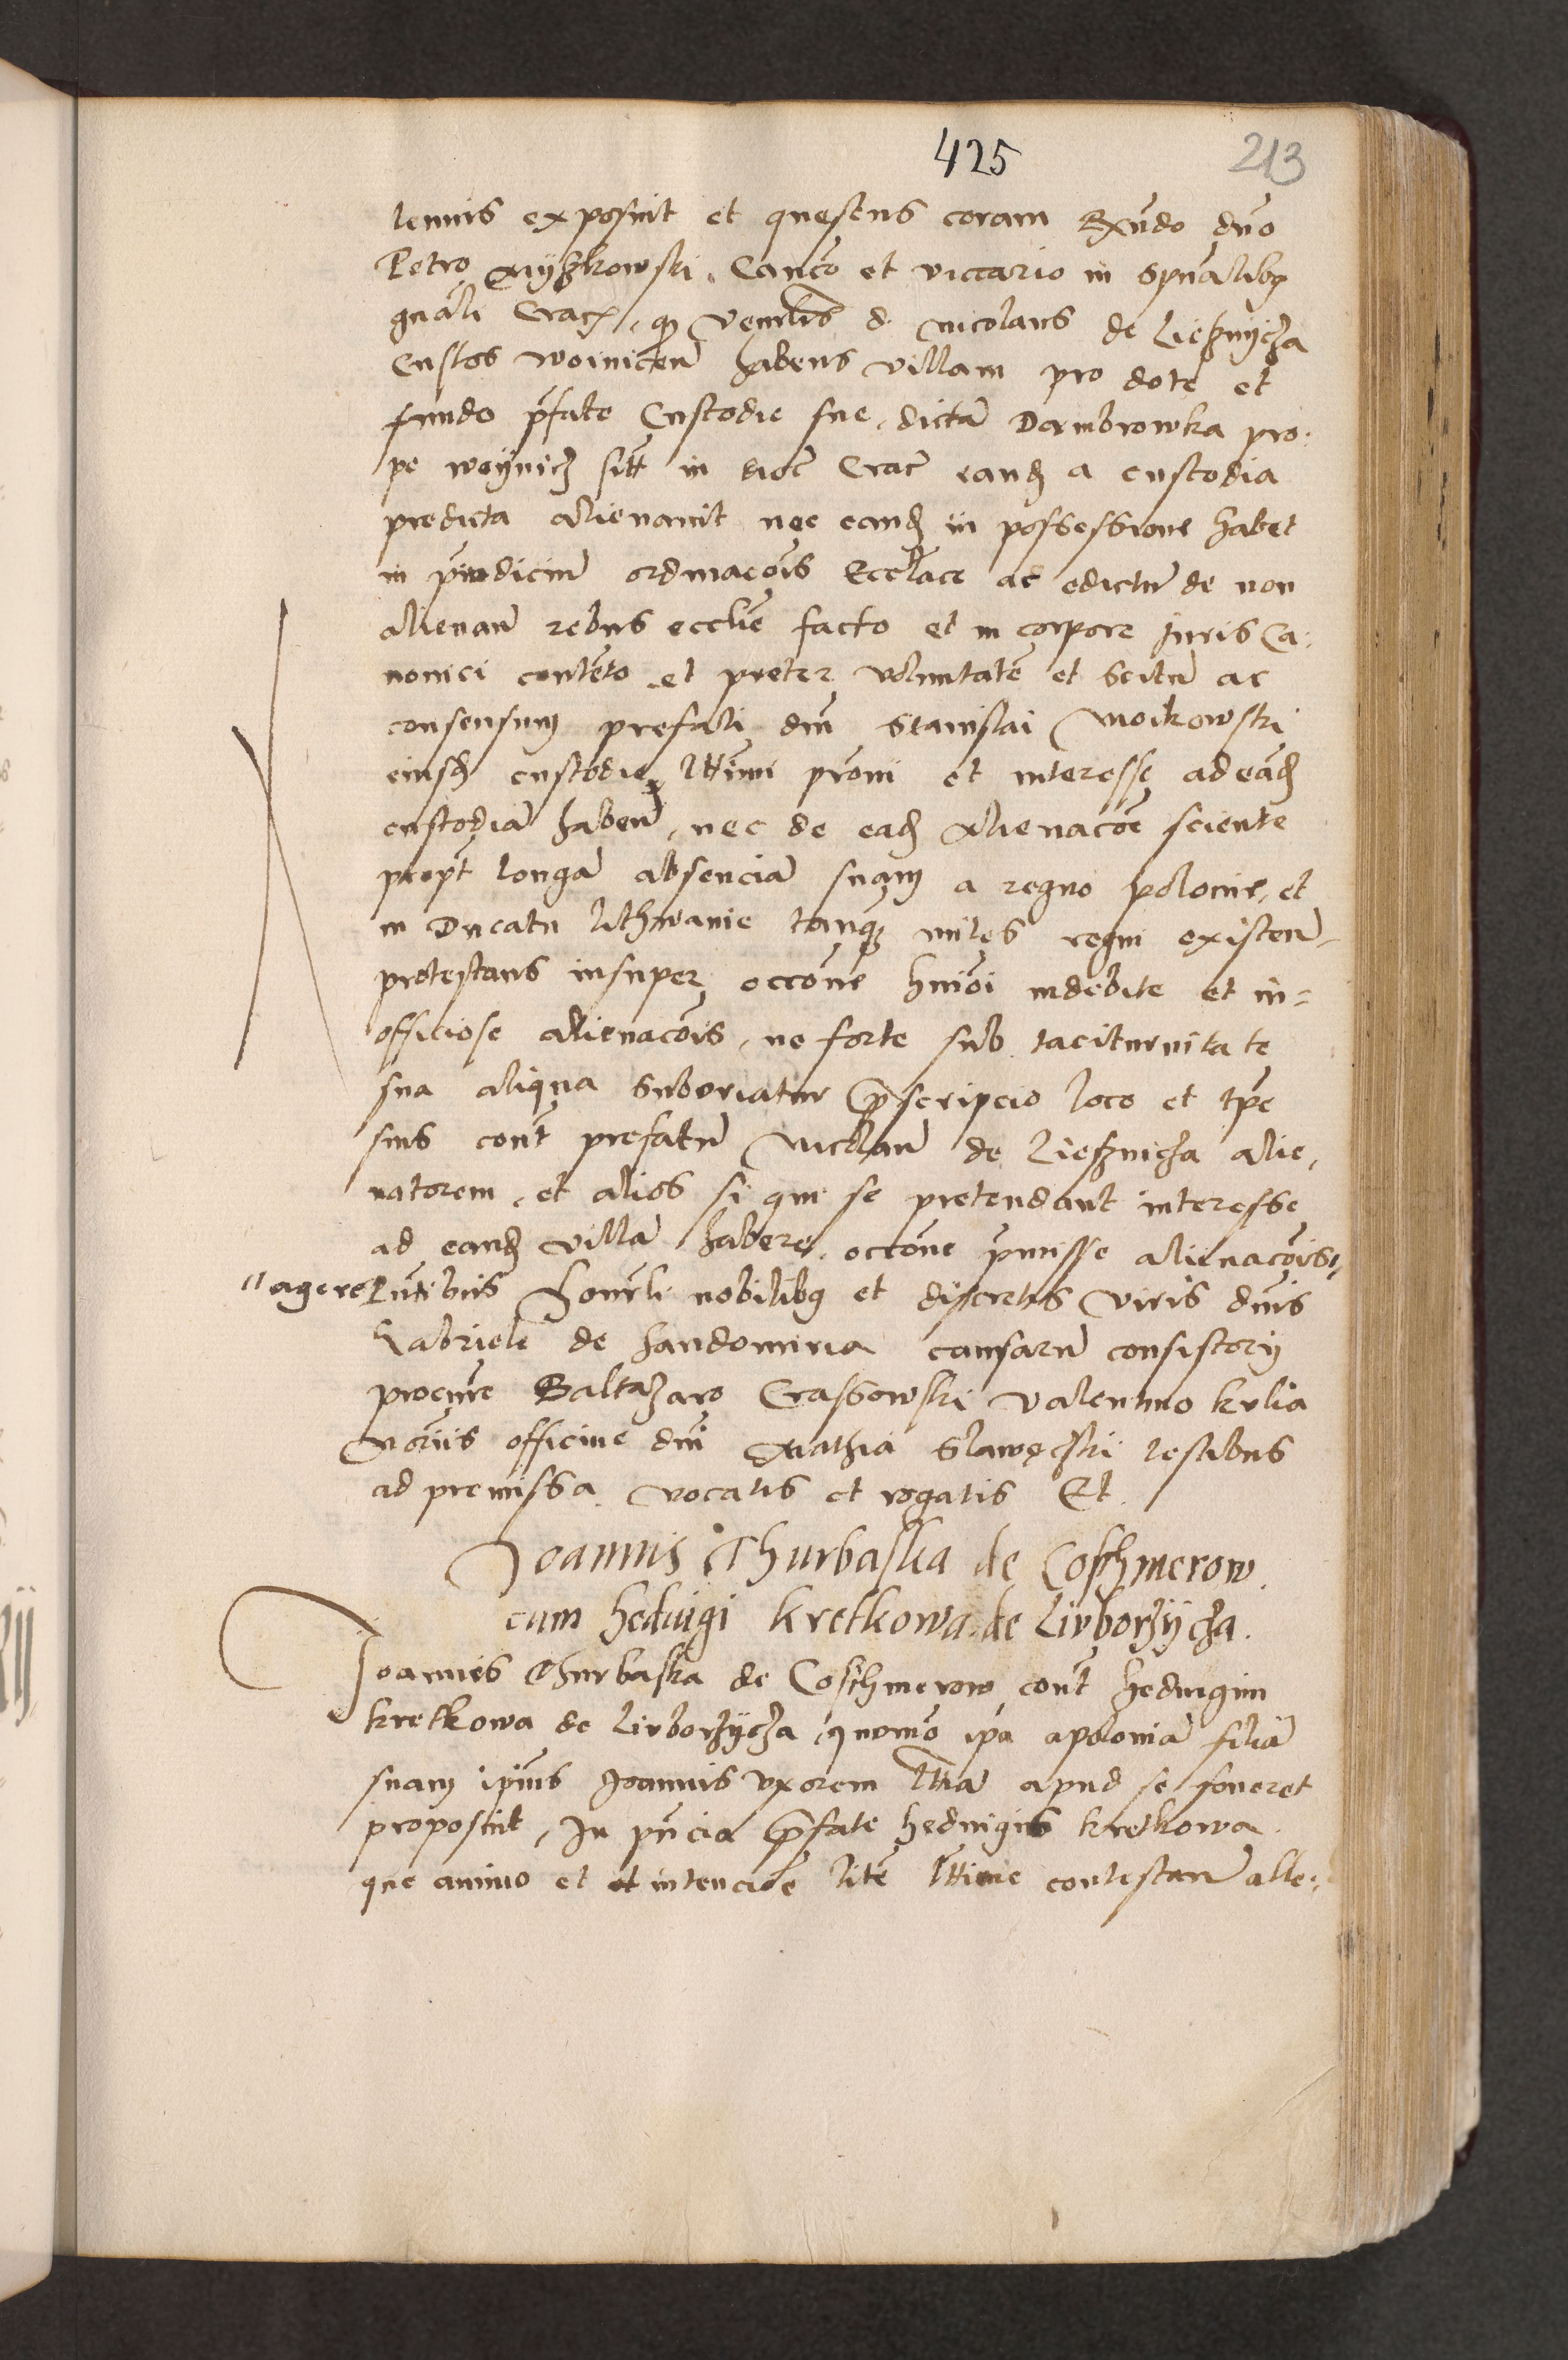 425 213
lemnis exposuit et questus coram Rx̃ndo dño
Petro Myszkowski Canco et viccario in spũalibq
gnãli Crac. q venerlis d. Nicolaus de Lieznycza
Custos woinicen̄ habens villam pro dote et
fundo p̃fate Custodie sue, dictā Dambrowka pro:
pe woynicz sitt in dioc̄ Crac̄ eandꝫ a custodia
predicta alienavit nec eandꝫ in possessione habet
in p̃iudiciū ordinacõis Eccl̃ace ac edictū de non
alienan̄ rebus eccl̃ie facto et in corpore Juris Ca:
nonici contẽto et preter voluntatẽ et scitū ac
consensum prefati dñi Stanislai Moikowski
eiusdꝫ custodie lttimi p̃roni et interesse ad eãdꝫ
custodiā haben̄, nec de eadꝫ Alienacõe sciente
propt̃ longā absenciā suam a regno polonie, et
in Ducatu lithwanie tanqꝫ miles regni existen̄
protestans insuper occõne hmõi indebite et in=
officiose alienacõis, ne forte sub taciturnitate
sua aliqua suboriatur p̃scripcio loco et tp̃e
suis cont̃ prefatū Nicolaū de Liesznicza alie,
natorem, et alios si qui se pretendant interesse
ad eandꝫ villā habere, occõne p̃misse alienacõis,,
"agere Pñtibus honorli nobilibq et discretis viris dñis
Gabriele de Sandomiria causarū consistorij
procure Baltazaro Crassowski valentino kulia
Nõriis officine dñi Mathia Slawęczski testibus
ad premissa vocatis et rogatis Et
Joannis Thurbaska de Coschmerow
cum heduigi kretkowa de Lirborzycza.
Joannes Thurbaska de Coschmerow cont̃ Heduigim
kretkowa de lirborzycza, quomõ ip̃a apoloniā filiā
suam ip̃ius Joannis vxorem lttiā apud se foveret
proposuit, In pñcia p̃fate heduigis kretkowa
que animo et et intencõe litẽ lttime contestan̄ alle: